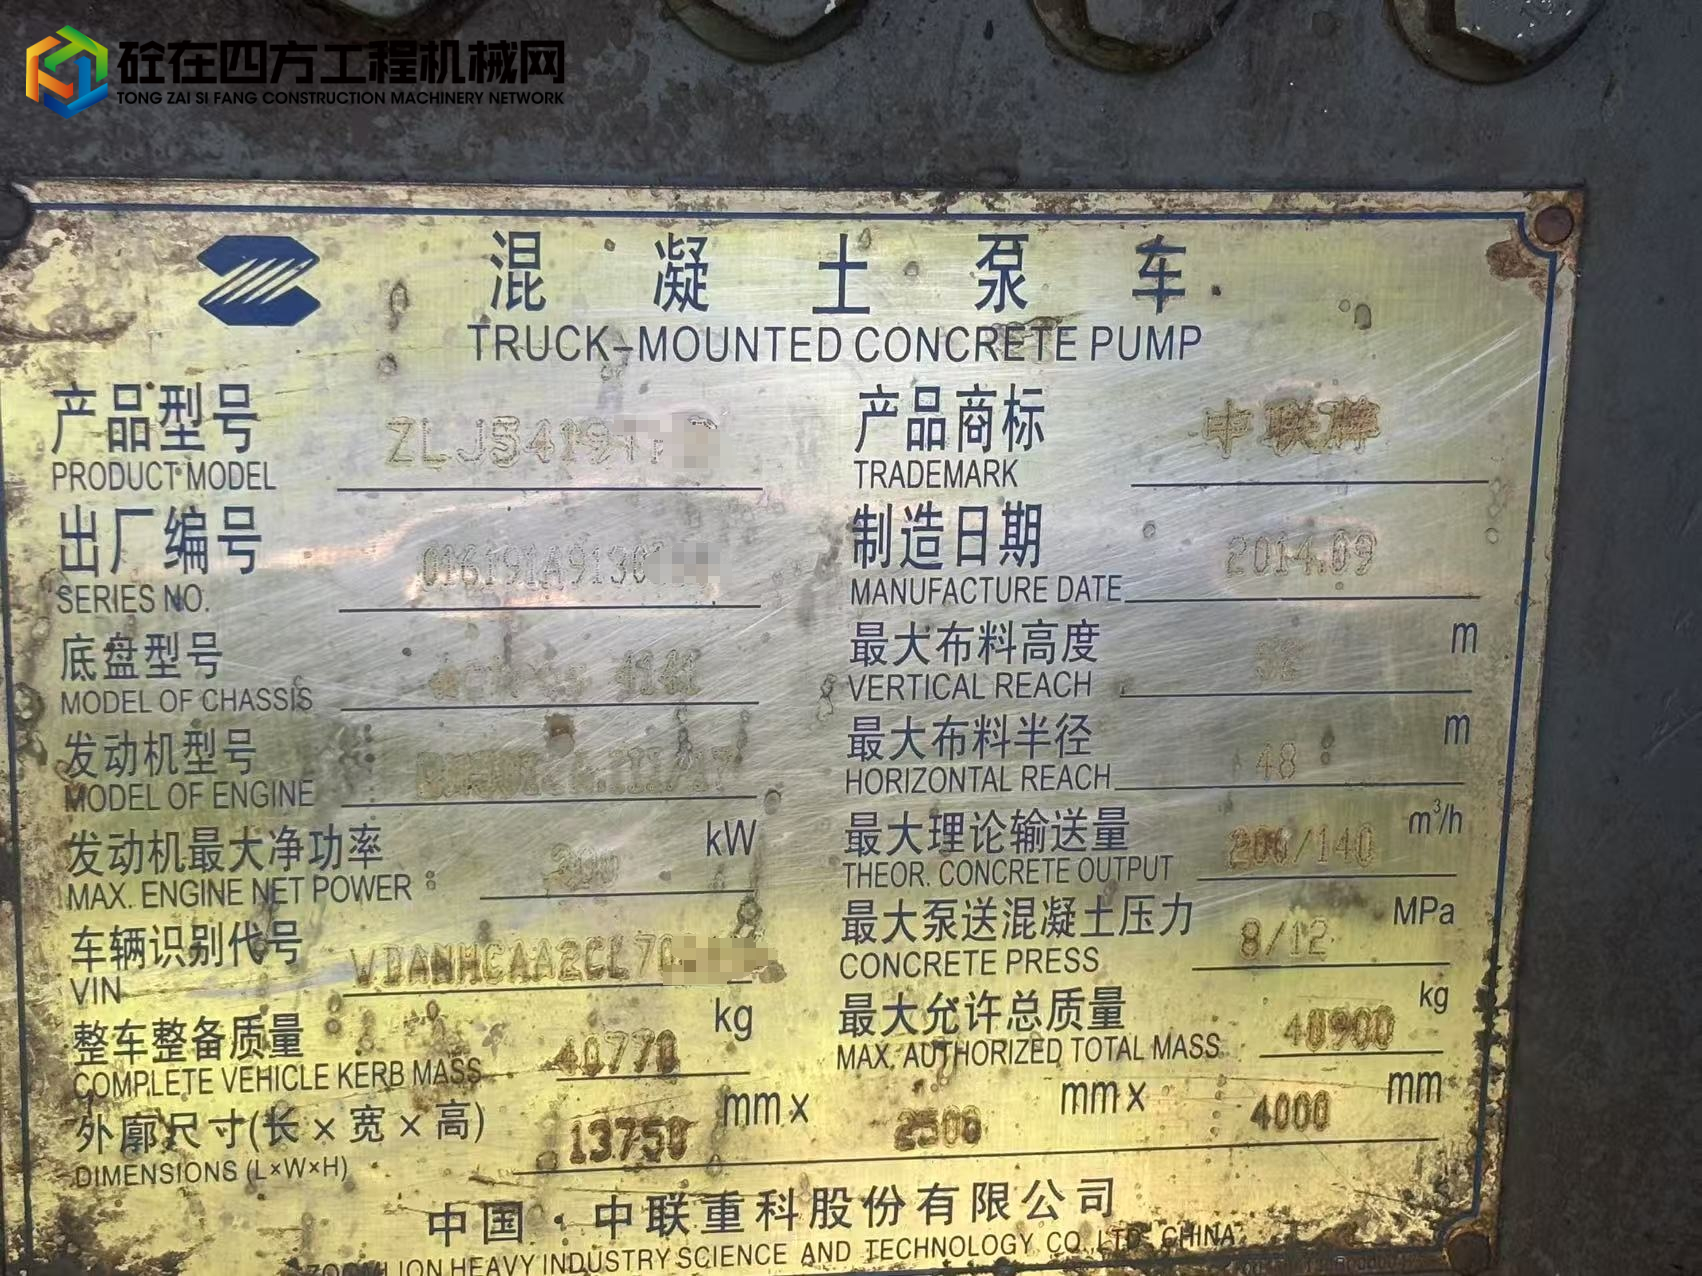 砼在四方工程机械网
TONG ZAI SI FANG CONSTRUCTION MACHINERY NETWORK
混凝土泵车
TRUCK-MOUNTED CONCRETE PUMP
产品型号 ZLJ5419
PRODUCT MODEL
产品商标 中联牌
TRADEMARK
出厂编号 016191A9130
SERIES NO.
制造日期 2014.09
MANUFACTURE DATE
底盘型号 4141
MODEL OF CHASSIS
最大布料高度 m
VERTICAL REACH
发动机型号
MODEL OF ENGINE
最大布料半径 48 m
HORIZONTAL REACH
发动机最大净功率 kW
MAX. ENGINE NET POWER:
最大理论输送量 200/140 m³/h
THEOR. CONCRETE OUTPUT
车辆识别代号 WDANHCAA2CL70
VIN
最大泵送混凝土压力 8/12 MPa
CONCRETE PRESS
整车整备质量 40770 kg
COMPLETE VEHICLE KERB MASS
最大允许总质量 40900 kg
MAX. AUTHORIZED TOTAL MASS
外廓尺寸(长×宽×高) 13750 mm x 2500 mm x 4000 mm
DIMENSIONS (L×W×H)
中国·中联重科股份有限公司
ZOOMLION HEAVY INDUSTRY SCIENCE AND TECHNOLOGY CO.,LTD. CHINA